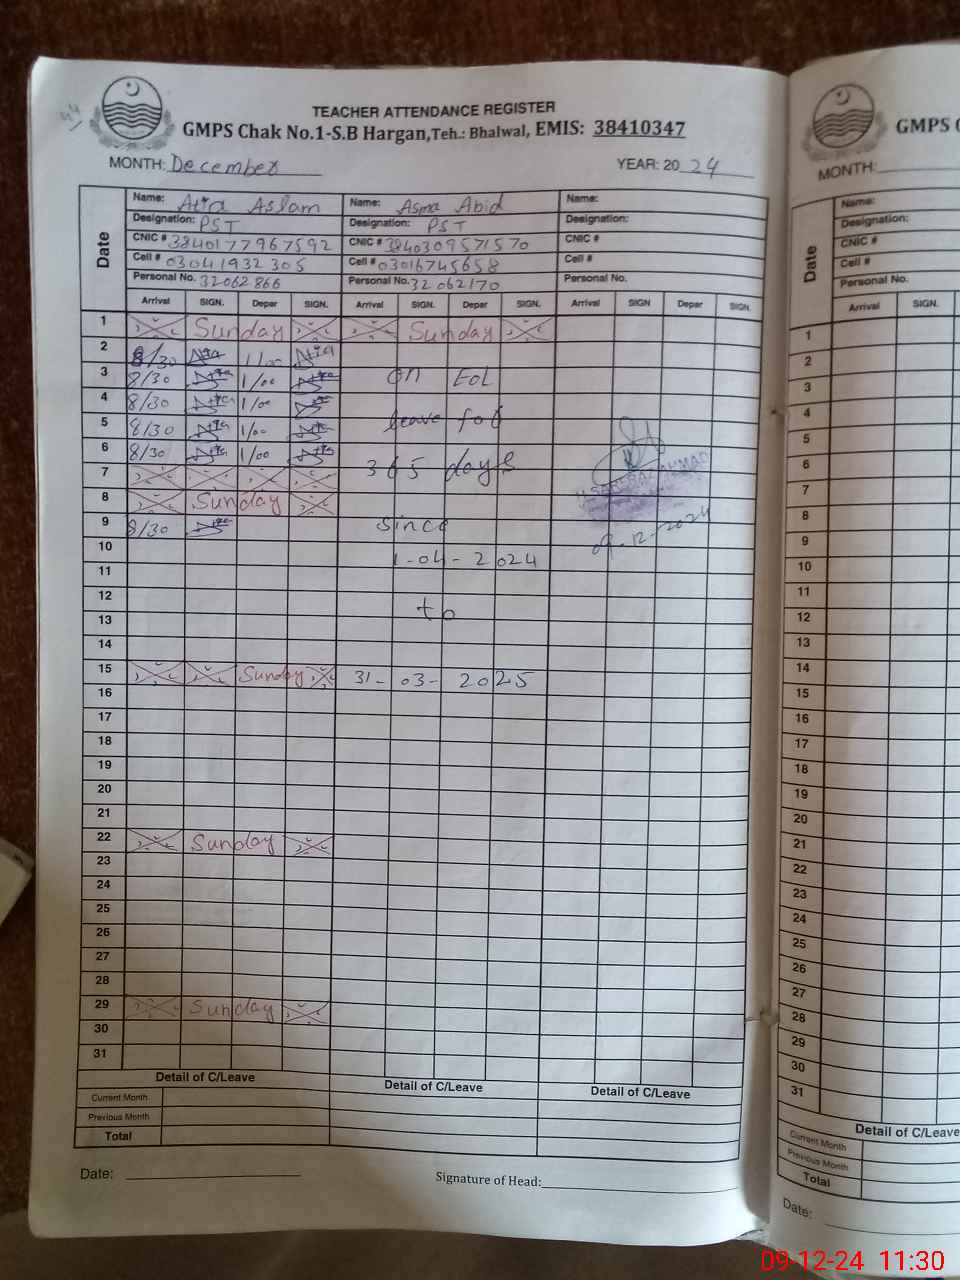 TEACHER ATTENDANCE REGISTER
GMPS Chak No.1-S.B Hargan, Teh.: Bhalwal, EMIS: 38410347
MONTH: December YEAR: 2024
Date
Name: Atia Aslam
Designation: PST
CNIC # 3840177967592
Cell # 03041932305
Personal No. 32062866
Name: Asma Abid
Designation: PST
CNIC # 3840309571570
Cell # 03016745658
Personal No. 32062170
Name:
Designation:
CNIC #
Cell #
Personal No.
Arrival SIGN. Depar SIGN. Arrival SIGN. Depar SIGN. Arrival SIGN Depar SIGN.
1 Sunday Sunday
2 8/30 Atia 1/00 Atia
3 8/30 Atia 1/00 Atia on EOL
4 8/30 Atia 1/00 Atia
5 8/30 Atia 1/00 Atia leave for
6 8/30 Atia 1/00 Atia 365 days
7
8 Sunday
9 8/30 Atia since
10 1-04-2024
11
12 to
13
14
15 Sunday 31-03-2025
16
17
18
19
20
21
22 Sunday
23
24
25
26
27
28
29 Sunday
30
31
09-12-2024
Detail of C/Leave Detail of C/Leave Detail of C/Leave
Current Month
Previous Month
Total
Date:
Signature of Head:
GMPS C
MONTH:
Date
Name:
Designation:
CNIC #
Cell #
Personal No.
Arrival SIGN.
1
2
3
4
5
6
7
8
9
10
11
12
13
14
15
16
17
18
19
20
21
22
23
24
25
26
27
28
29
30
31
Detail of C/Leave
Current Month
Previous Month
Total
Date:
09-12-24 11:30